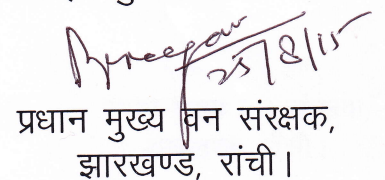 25/8/15
प्रधान मुख्य वन संरक्षक,
झारखण्ड, रांची।